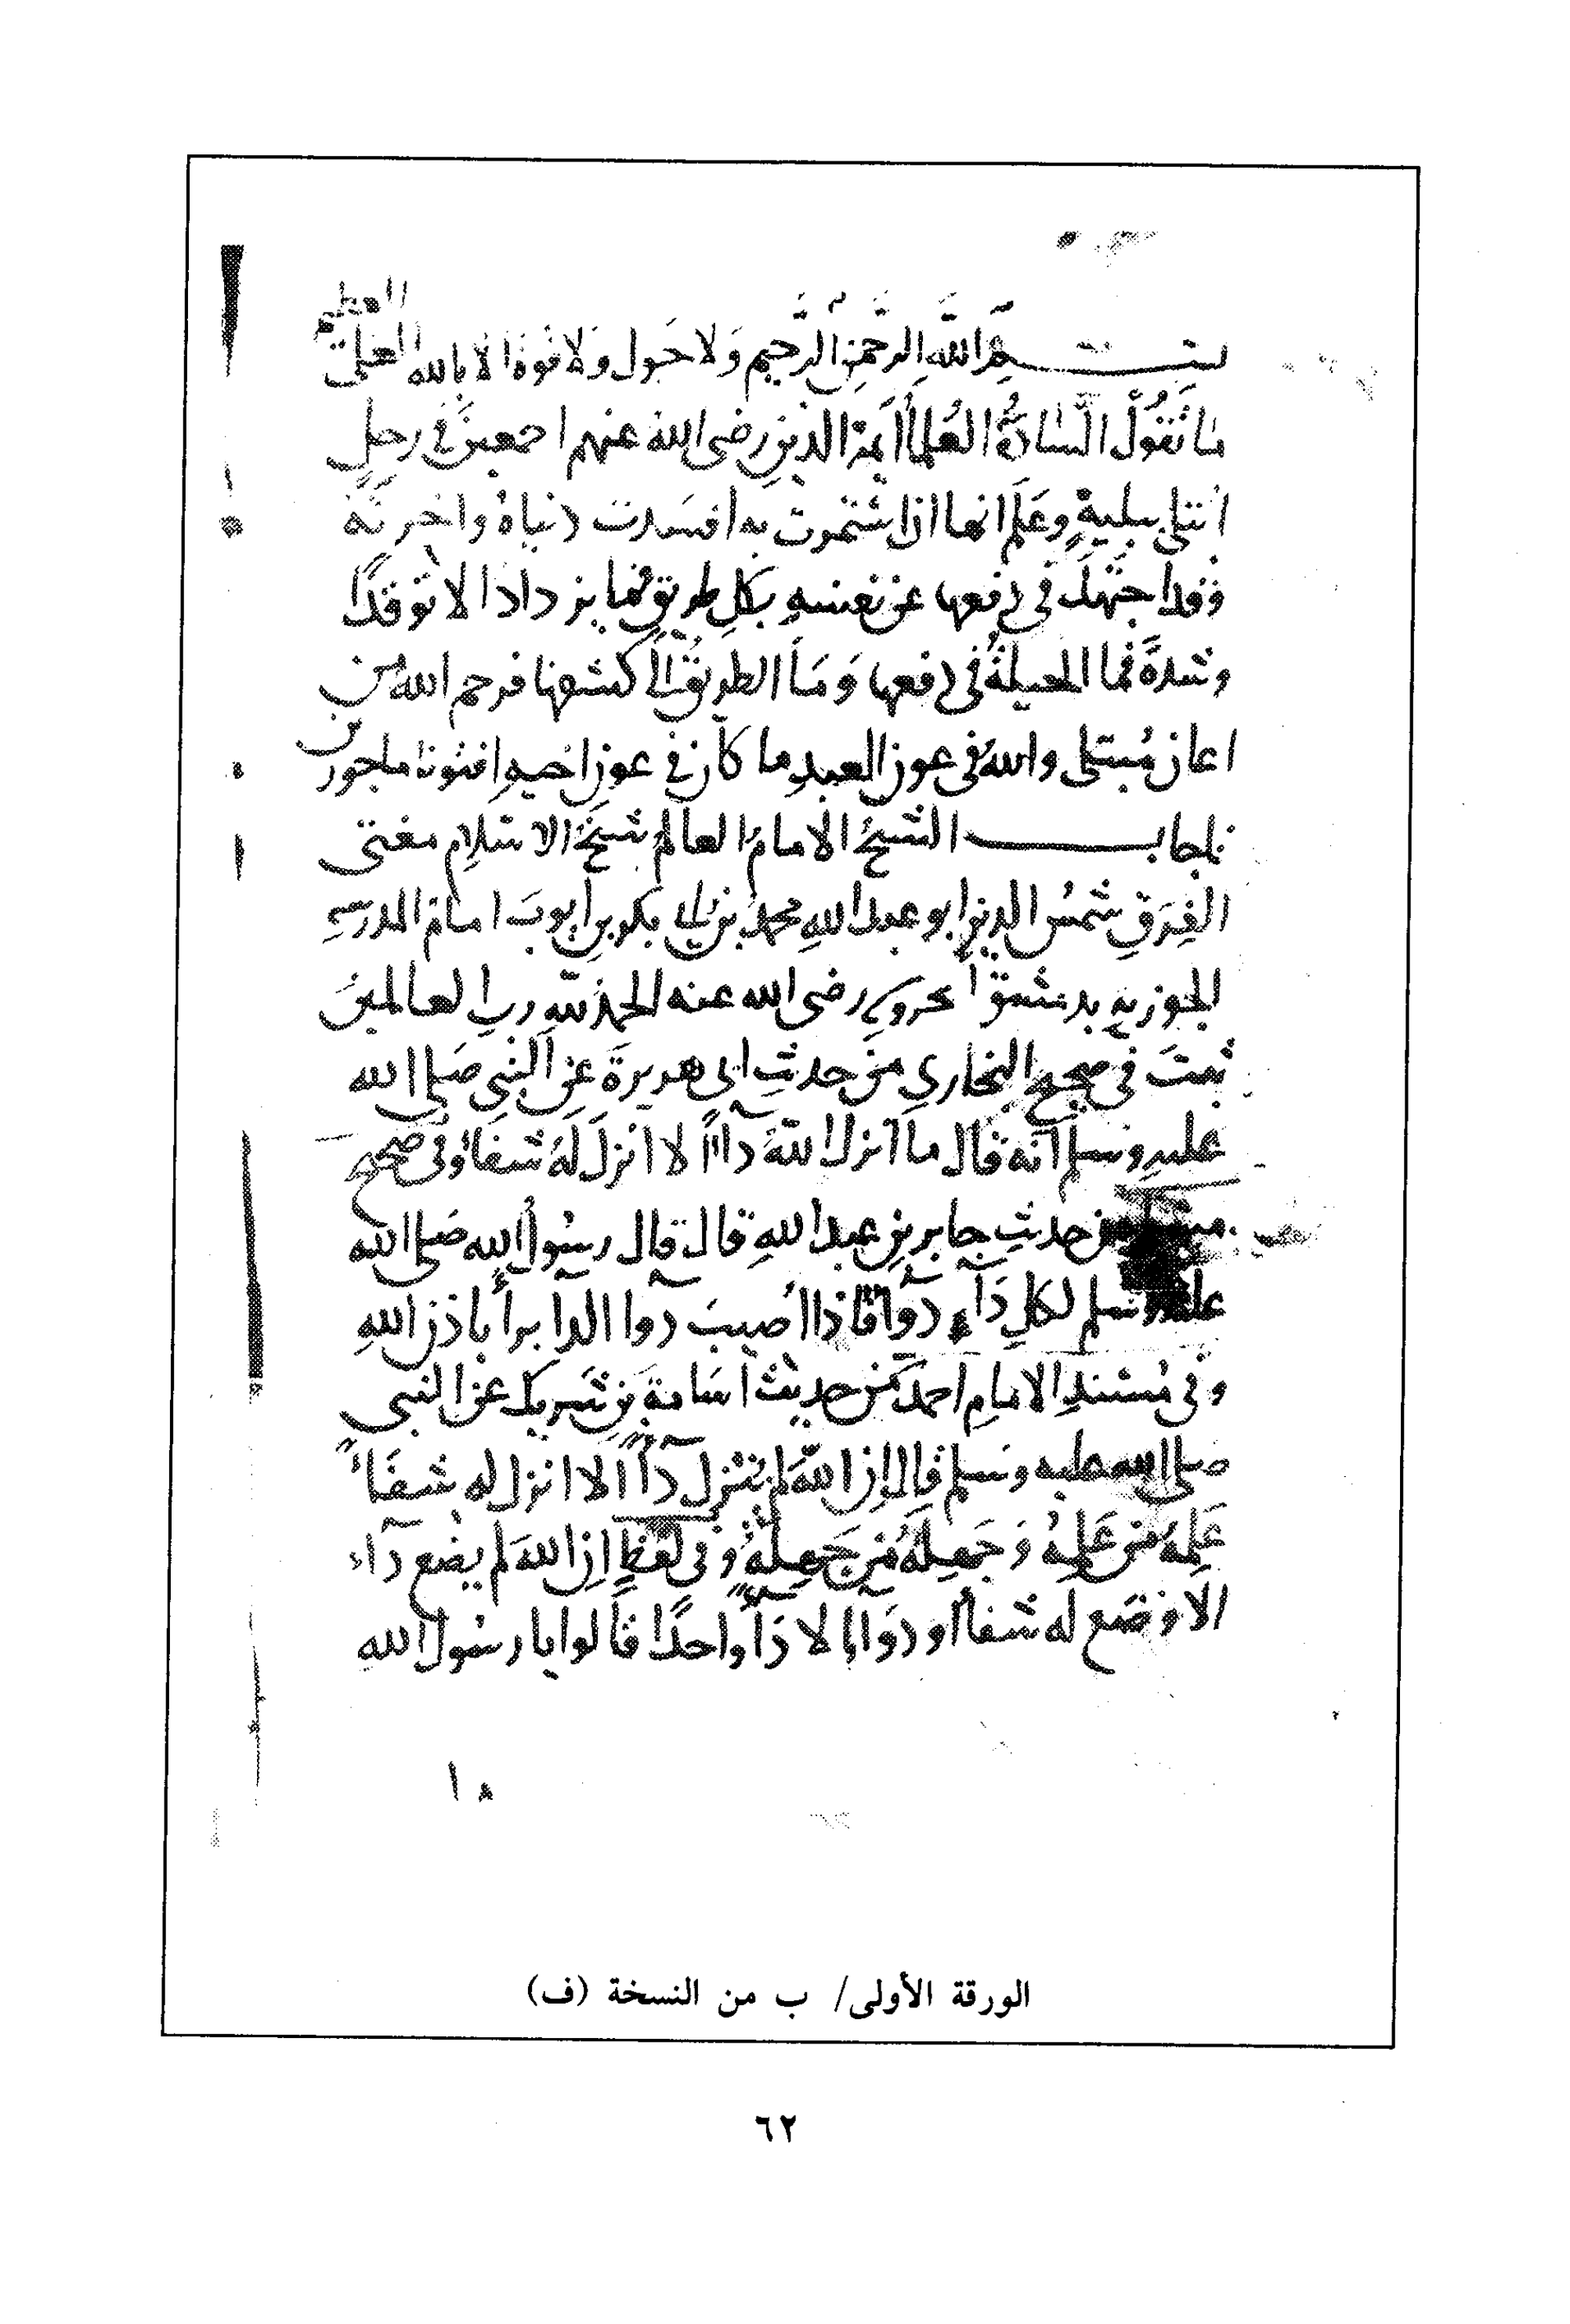 بسم الله الرحمن الرحيم ولا حول ولا قوة الا بالله العلى العظيم
ما تَقُولُ السَّادةُ العُلماَ ايمة الدين رضى الله عنهم اجمعينَ فى رجل
ابتلى ببليةٍ وعَلِم انها ان استمرت به افسدت دنياهُ واخرته
وقد اجتهدَ فى دفعها عن نفسهِ بكلِ طريق فما يزداد الا توقدًا
وشدةً فما الحيلةُ فى دفعها وَمَا الطريقُ الى كشفها فرحم الله من
اعان مُبتلى واللهُ فى عون العبدِ ما كان فى عون اخيهِ افتونا ماجورين
فاجاب الشيخُ الامامُ العالم شيخُ الاسلام مفتى
الفِرَقِ شمسُ الدين ابو عبد اللهِ محمد بن ابى بكر بن ايوبَ امام المدرسه
الجوزيه بدمشق المحروسه رضى الله عنه الحمد للهِ رب العالمينَ
ثبتَ فى صحيح البخارى من حديثِ ابى هريرةَ عن النبى صَلى الله
عليهِ وسلم انه قال ما انزل اللهُ دآءً الا انزلَ لَهُ شفاءً وفى صحيح
مسلم من حديثِ جابر بن عبد اللهِ قال قال رسُول الله صَلى الله
عليه وسلم لكلِ دَآءٍ دوآءٌ فاذا اُصيبَ دوا الدآ برأ باذن اللهِ
وفى مُسندِ الامامِ احمدَ من حديث اسَامةَ بن شريك عن النبى
صَلى الله عليه وسلم قال اِن اللهَ لم يُنزل دآءً الا انزل له شفَاءً
عَلِمَهُ من عَلِمهُ وَجَهِلَهُ من جَهِلَهُ وفى لفظٍ ان اللهَ لم يضع دآء
الا وضَع له شفاً او دوَآءً الا دَآءً واحدًا قالوا يا رسُول اللهِ
الورقة الأولى/ ب من النسخة (ف)
٦٢